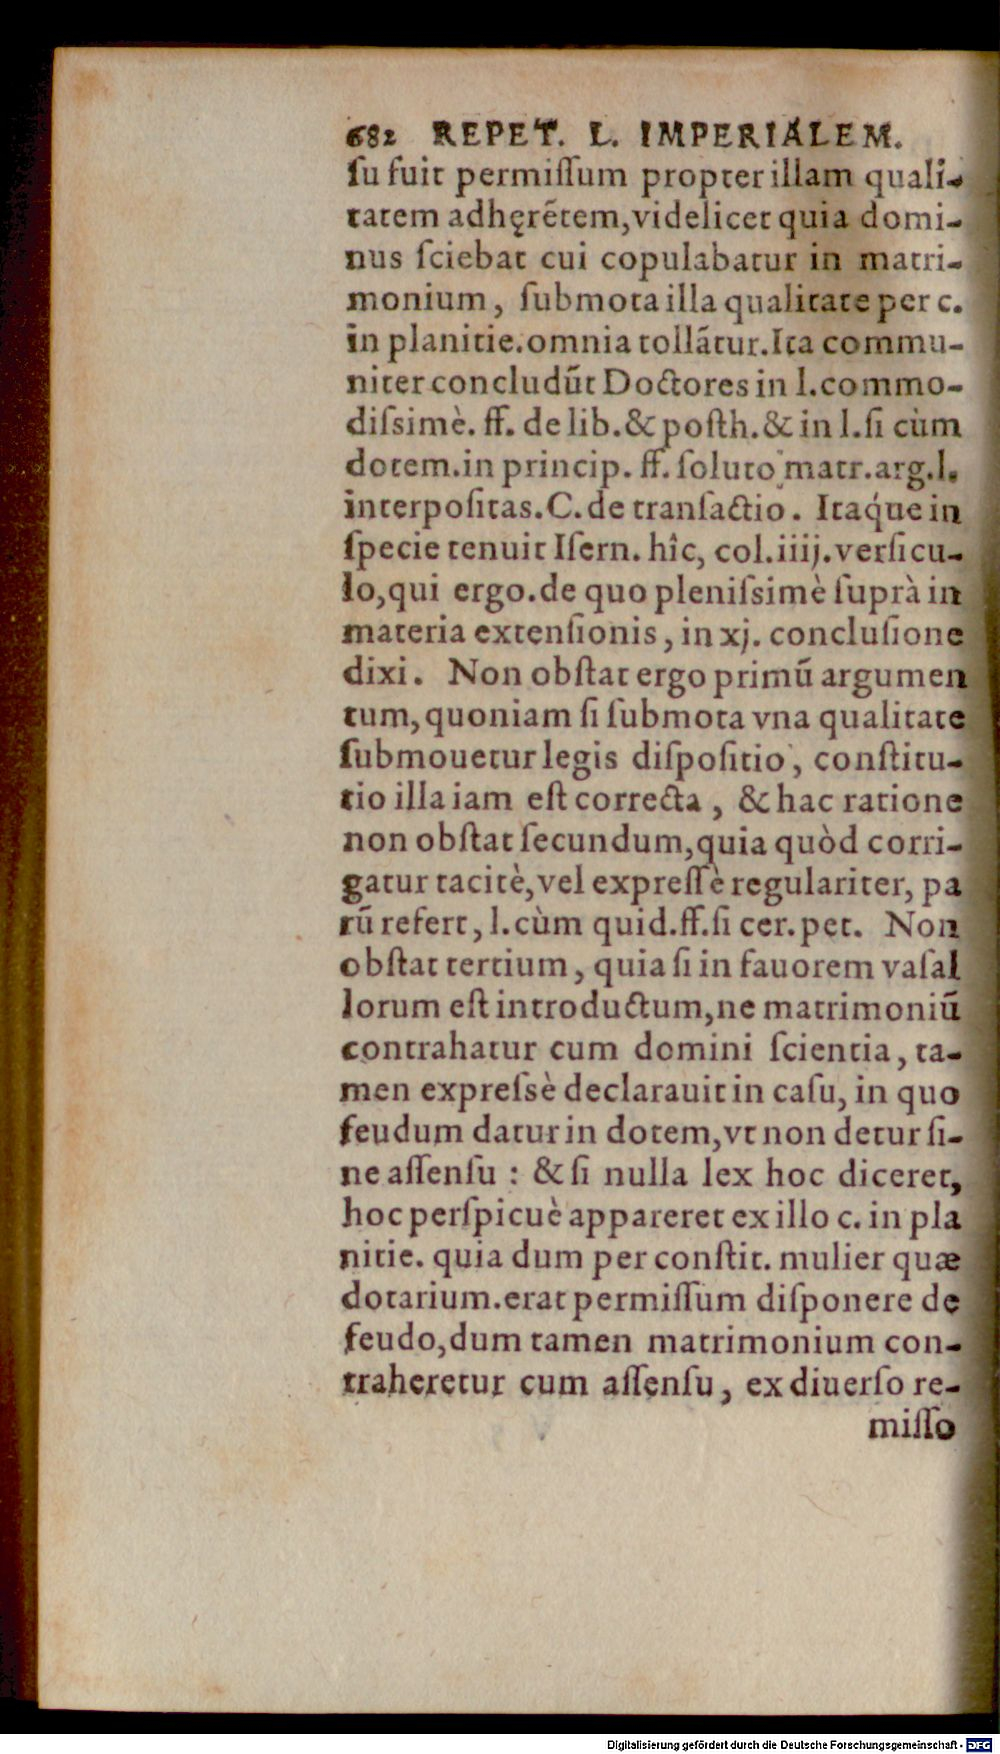 682 REPET. L. IMPERIALEM.
ſu fuit permiſſum propter illam quali-
tatem adhęrẽtem, videlicet quia domi-
nus ſciebat cui copulabatur in matri-
monium, ſubmota illa qualitate per c.
in planitie. omnia tollãtur. Ita commu-
niter concludũt Doctores in l. commo-
diſsimè. ff. de lib. & poſth. & in l. ſi cùm
dotem. in princip. ff. ſoluto matr. arg. l.
interpoſitas. C. de tranſactio. Itaq́ue in
ſpecie tenuit Iſern. hîc, col. iiij. verſicu-
lo, qui ergo. de quo pleniſsimè ſuprà in
materia extenſionis, in xj. concluſione
dixi. Non obſtat ergo primũ argumen
tum, quoniam ſi ſubmota vna qualitate
ſubmouetur legis diſpoſitio, conſtitu-
tio illa iam eſt correcta, & hac ratione
non obſtat ſecundum, quia quòd corri-
gatur tacitè, vel expreſſè regulariter, pa
rũ refert, l. cùm quid. ff. ſi cer. pet. Non
obſtat tertium, quia ſi in fauorem vaſal
lorum eſt introductum, ne matrimoniũ
contrahatur cum domini ſcientia, ta-
men expreſsè declarauit in caſu, in quo
feudum datur in dotem, vt non detur ſi-
ne aſſenſu : & ſi nulla lex hoc diceret,
hoc perſpicuè appareret ex illo c. in pla
nitie. quia dum per conſtit. mulier quæ
dotarium. erat permiſſum diſponere de
feudo, dum tamen matrimonium con-
traheretur cum aſſenſu, ex diuerſo re-
miſſo
Digitalisierung gefördert durch die Deutsche Forschungsgemeinschaft - DFG